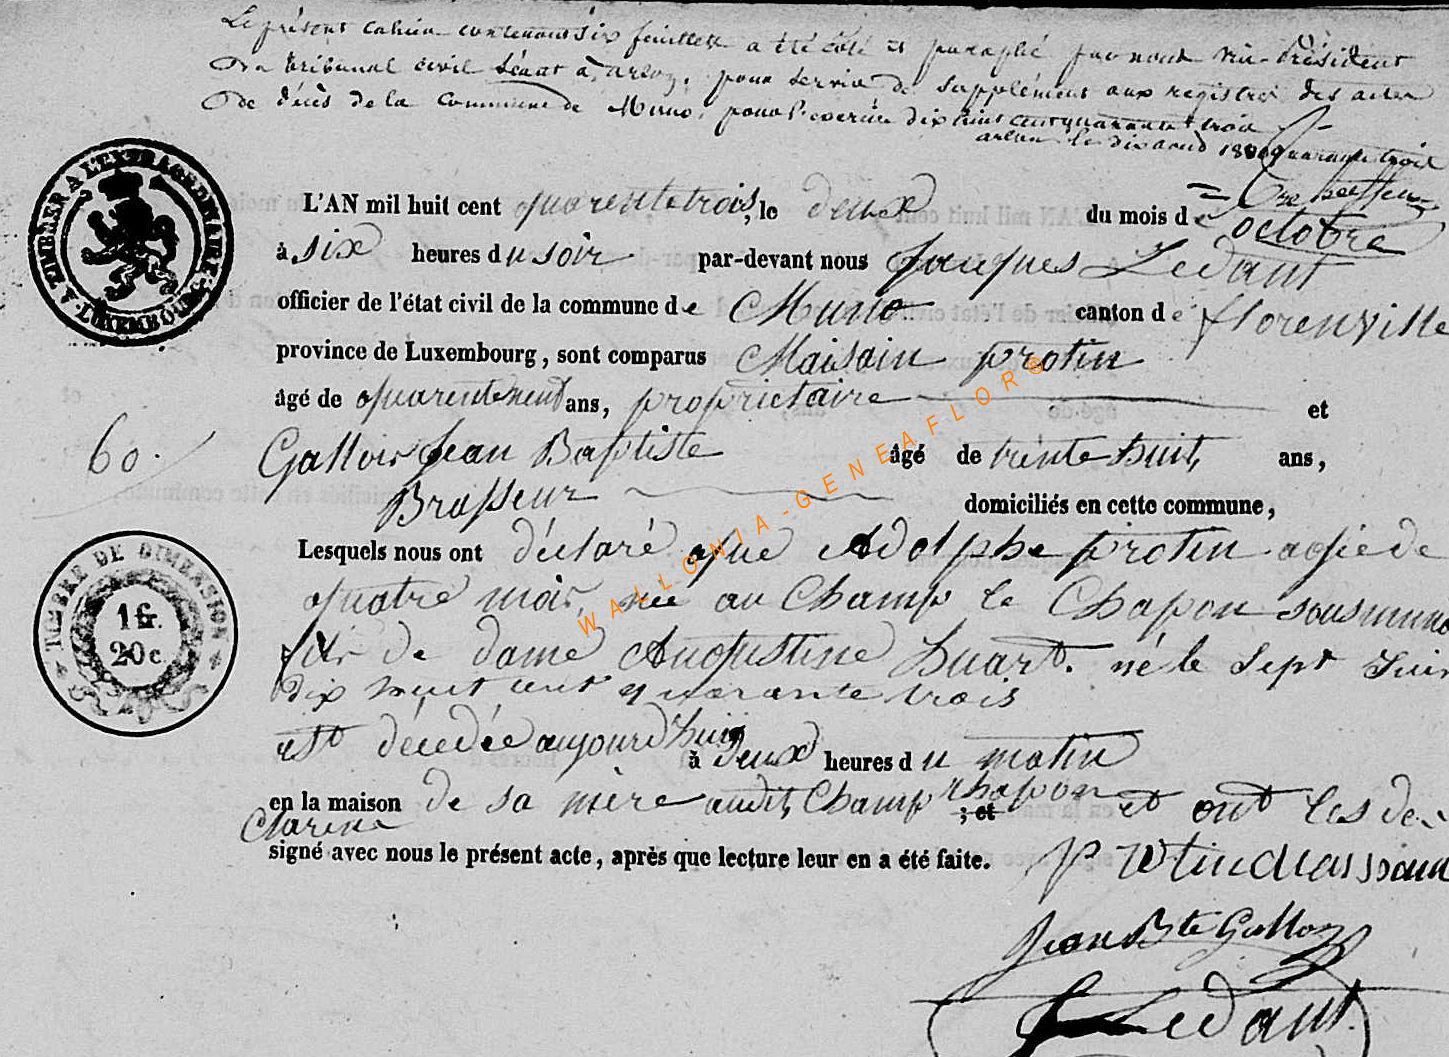 Le présent cahier contenant six feuillets a été coté et paraphé par nous vice-Président
du tribunal civil séant à arlon, pour servir de supplément aux registres des actes
de décès de la Commune de Muno, pour l'exercice dix huit cent quarante trois
arlon le dix aoud 18 quarante trois
TIMBRER A L'EXTRAORDINAIRE
LUXEMBOURG
L'AN mil huit cent quarente trois, le deux du mois de octobre
à six heures du soir par-devant nous Jacques Ledant
officier de l'état civil de la commune de Muno canton de florenville
province de Luxembourg, sont comparus Maisain protin
âgé de quarente neuf ans, propriétaire et
60. Gallois Jean Baptiste âgé de trente huit ans,
Brasseur domiciliés en cette commune,
Lesquels nous ont déclaré que Adolphe protin agé de
quatre mois, née au Champ le Chapon sous muno
fils de dame Augustine huart. né le sept Juin
dix huit cent quarante trois
est décédée aujourd'huis à deux heures du matin
en la maison de sa mère audit Champ chapon ; et et ont les de-
Clarens
signé avec nous le présent acte, après que lecture leur en a été faite.
TIMBRE DE DIMENSION
1 fr.
20 c.
Jean Bte Gallois
Ledant
WALLONIA-GENEAFLOR©